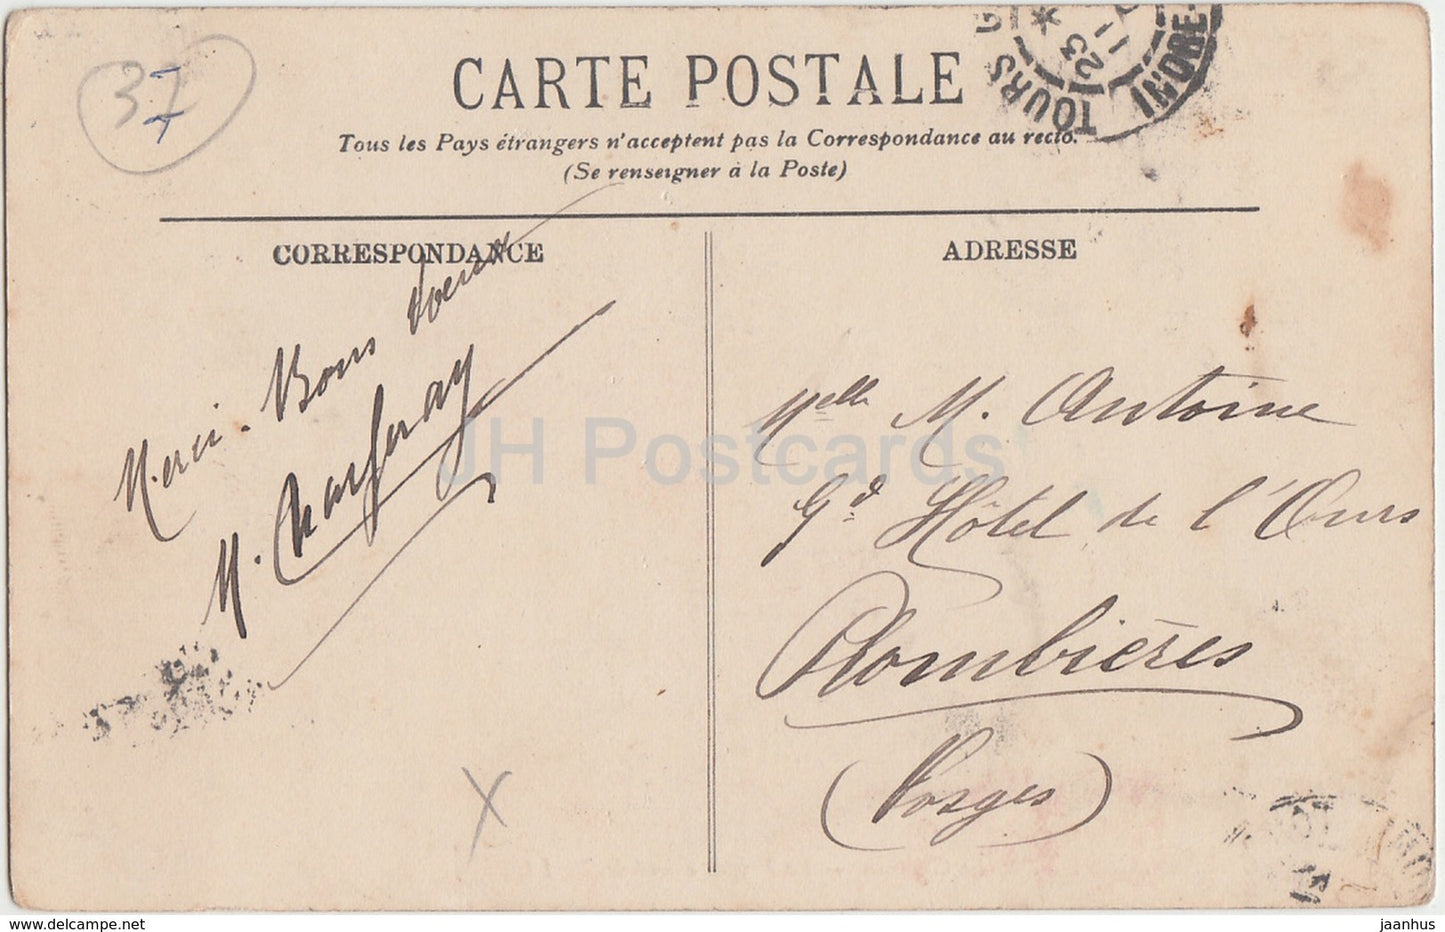 37
CARTE POSTALE
Tous les Pays étrangers n'acceptent pas la Correspondance au recto.
(Se renseigner à la Poste)
TOURS G
INDRE-
23
11
CORRESPONDANCE
ADRESSE
Merci. Bons voeux
M.
Melle M. Antoine
Gd Hôtel de l'Ours
Plombières
(Vosges)
X
JH Postcards
www.delcampe.net
jaanhus